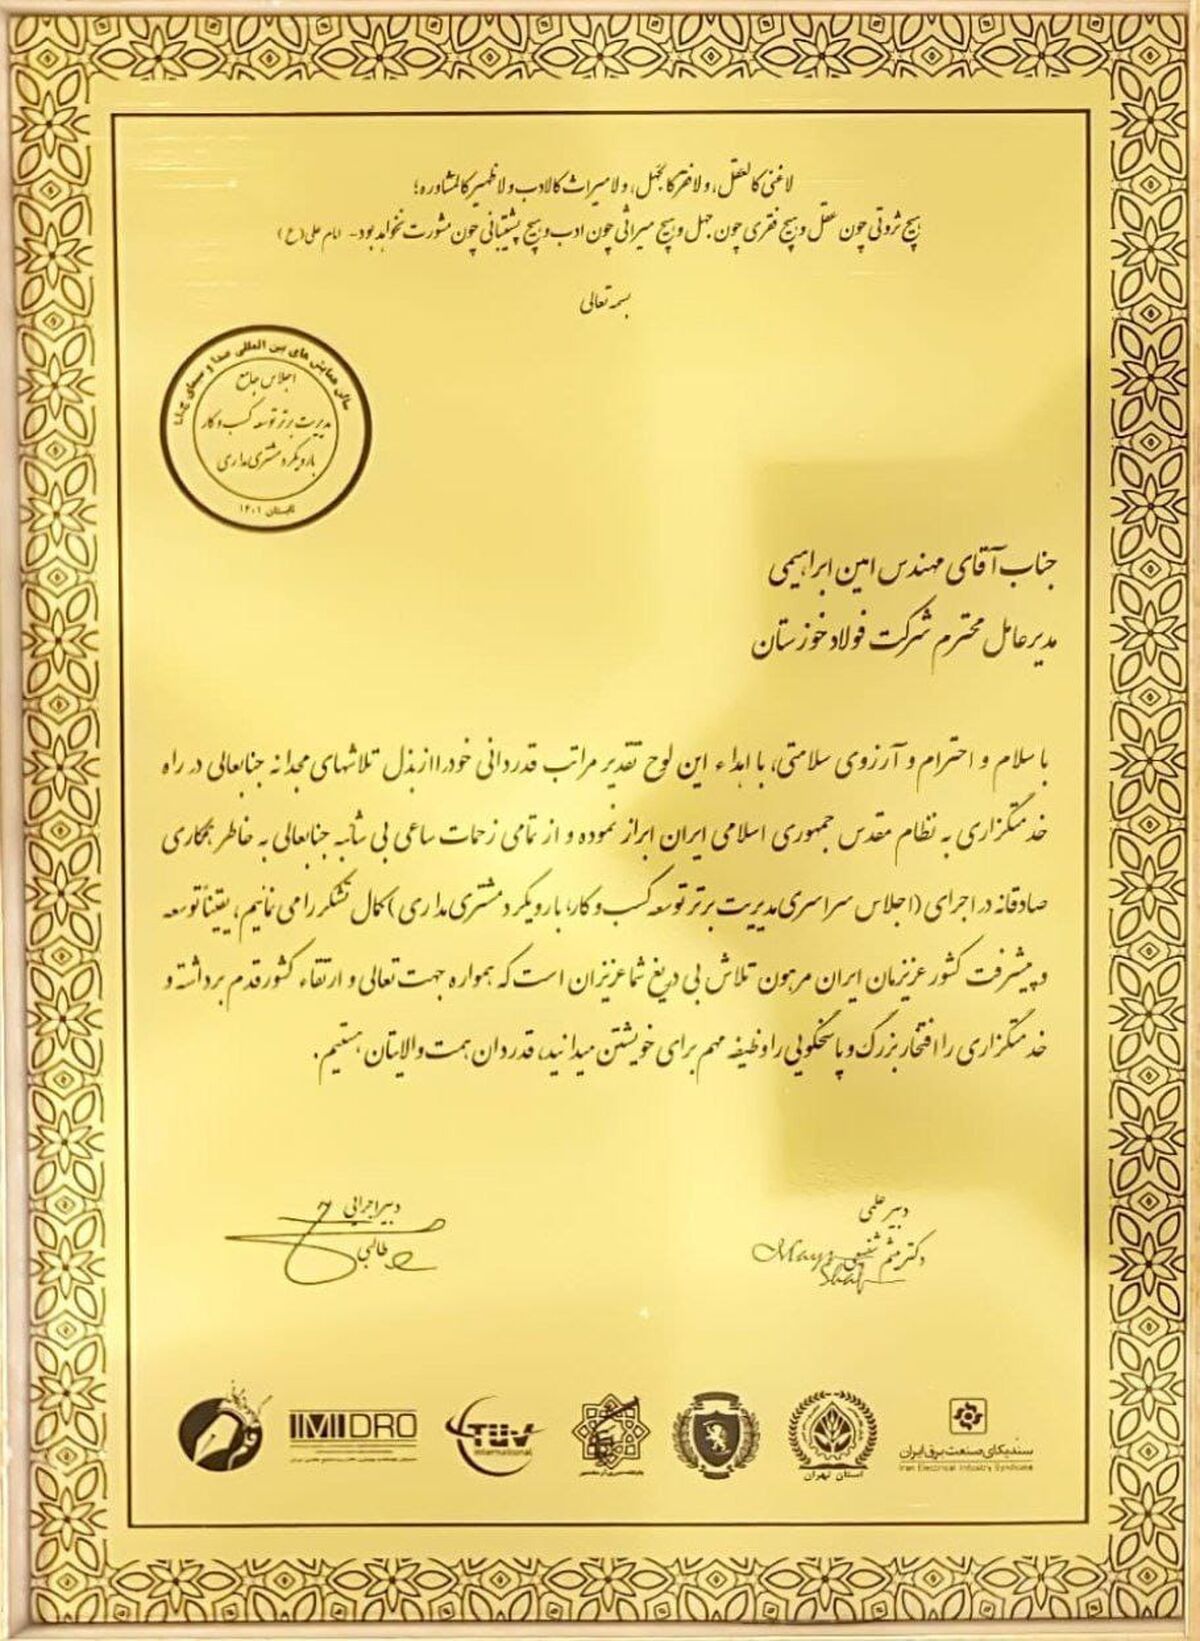 لاغنی کالعقل، ولا فقر کالجهل، ولا میراث کالادب ولا ظهیر کالمشاوره؛
هیچ ثروتی چون عقل و هیچ فقری چون جهل و هیچ میراثی چون ادب و هیچ پشتیبانی چون مشورت نخواهد بود - امام علی(ع)
بسمه تعالی
سالن همایش های بین المللی صدا و سیمای ج.ا.ا
اجلاس جامع
مدیریت برتر توسعه کسب و کار
با رویکرد مشتری مداری
تابستان ۱۴۰۱
جناب آقای مهندس امین ابراهیمی
مدیرعامل محترم شرکت فولاد خوزستان
با سلام و احترام و آرزوی سلامتی، با اهداء این لوح تقدیر مراتب قدردانی خود را از بذل تلاشهای مجدانه جنابعالی در راه
خدمتگزاری به نظام مقدس جمهوری اسلامی ایران ابراز نموده و از تمامی زحمات ساعی بی شائبه جنابعالی به خاطر همکاری
صادقانه در اجرای (اجلاس سراسری مدیریت برتر توسعه کسب و کار، با رویکرد مشتری مداری) کمال تشکر را می نمائیم، یقیناً توسعه
و پیشرفت کشور عزیزمان ایران مرهون تلاش بی دریغ شما عزیزان است که همواره جهت تعالی و ارتقاء کشور قدم برداشته و
خدمتگزاری را افتخار بزرگ و پاسخگویی را وظیفه مهم برای خویشتن میدانید، قدردان همت والایتان هستیم.
دبیر علمی
دکتر میثم شفیعی
دبیر اجرایی
طالبی
سندیکای صنعت برق ایران
Iran Electrical Industry Syndicate
استان تهران
TÜV
international
IMIDRO